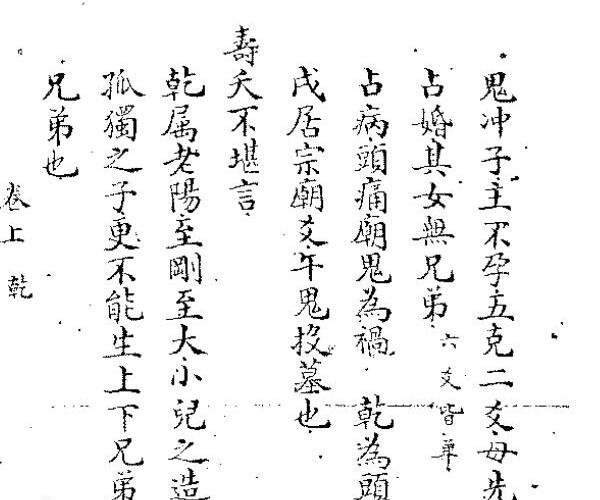 鬼冲子主不孕五克二爻母先
占婚其女無兄弟 六爻皆單
占病頭痛廟鬼為禍 乾為頭
戌居宗廟爻午鬼投墓也
壽夭不堪言
乾属老陽至剛至大小兒之造
孤獨之子更不能生上下兄弟
兄弟也
卷上 乾